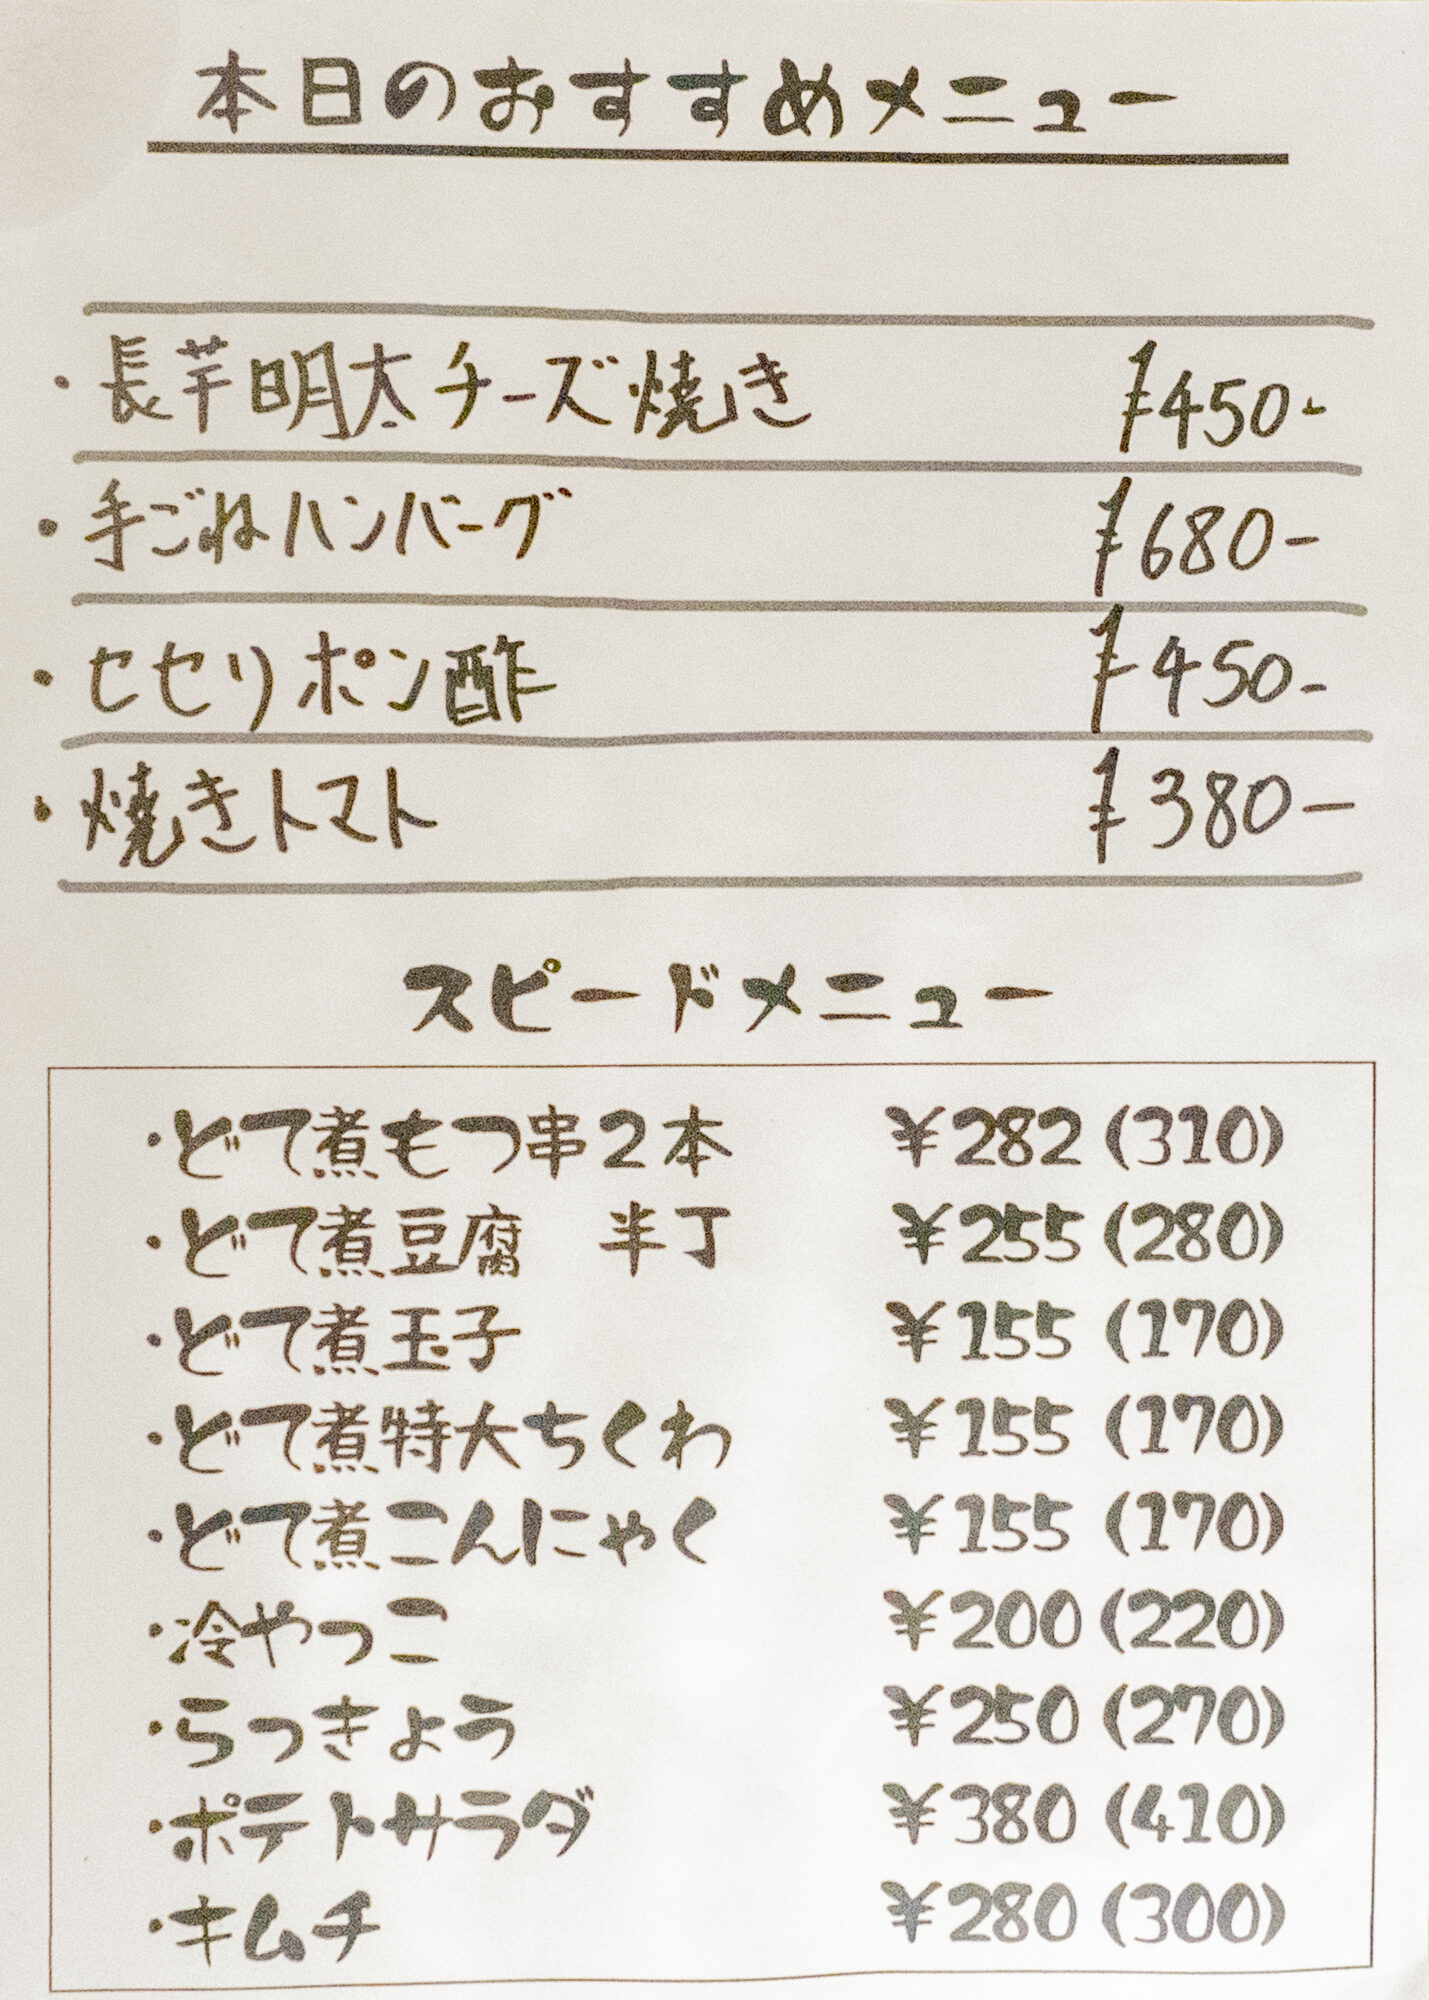 本日のおすすめメニュー
・長芋明太チーズ焼き ¥450-
・手ごねハンバーグ ¥680-
・セセリポン酢 ¥450-
・焼きトマト ¥380-
スピードメニュー
・どて煮もつ串2本 ¥282(310)
・どて煮豆腐 半丁 ¥255(280)
・どて煮玉子 ¥155(170)
・どて煮特大ちくわ ¥155(170)
・どて煮こんにゃく ¥155(170)
・冷やっこ ¥200(220)
・らっきょう ¥250(270)
・ポテトサラダ ¥380(410)
・キムチ ¥280(300)